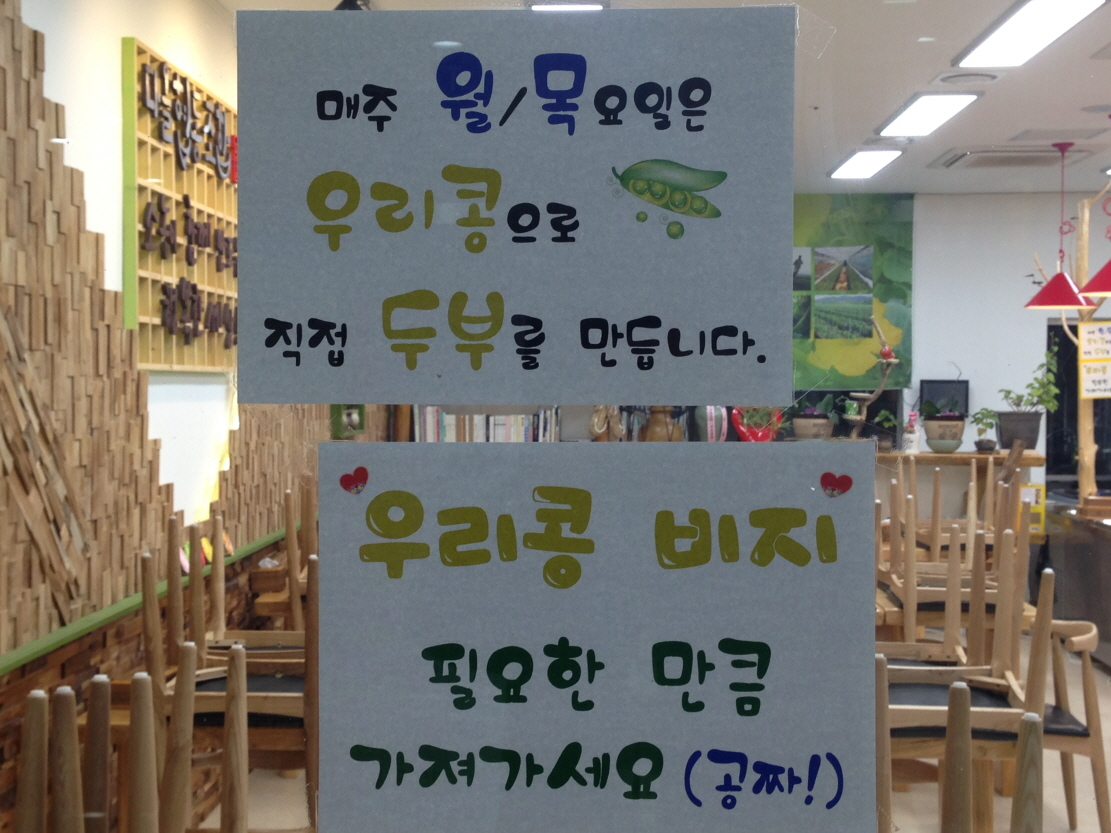 매주 월/목요일은
우리콩으로
직접 두부를 만듭니다.
우리콩 비지
필요한 만큼
가져가세요 (공짜!)